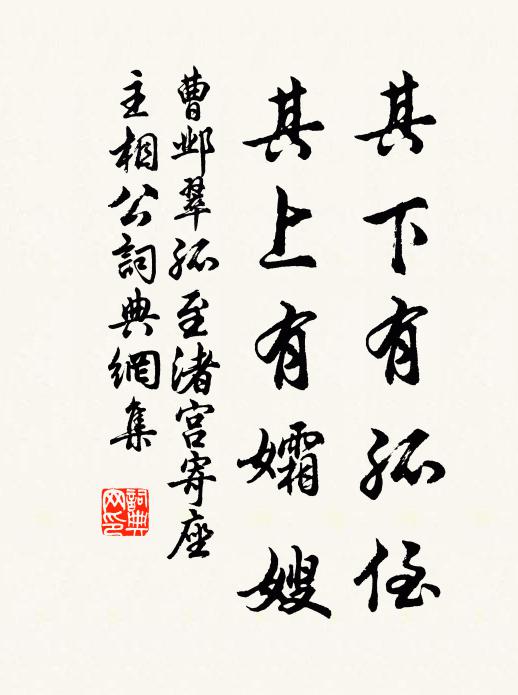 其下有孤侄
其上有孀嫂
曹邺翠孤至渚宫寄座
主相公詞典網集
詞典
网印